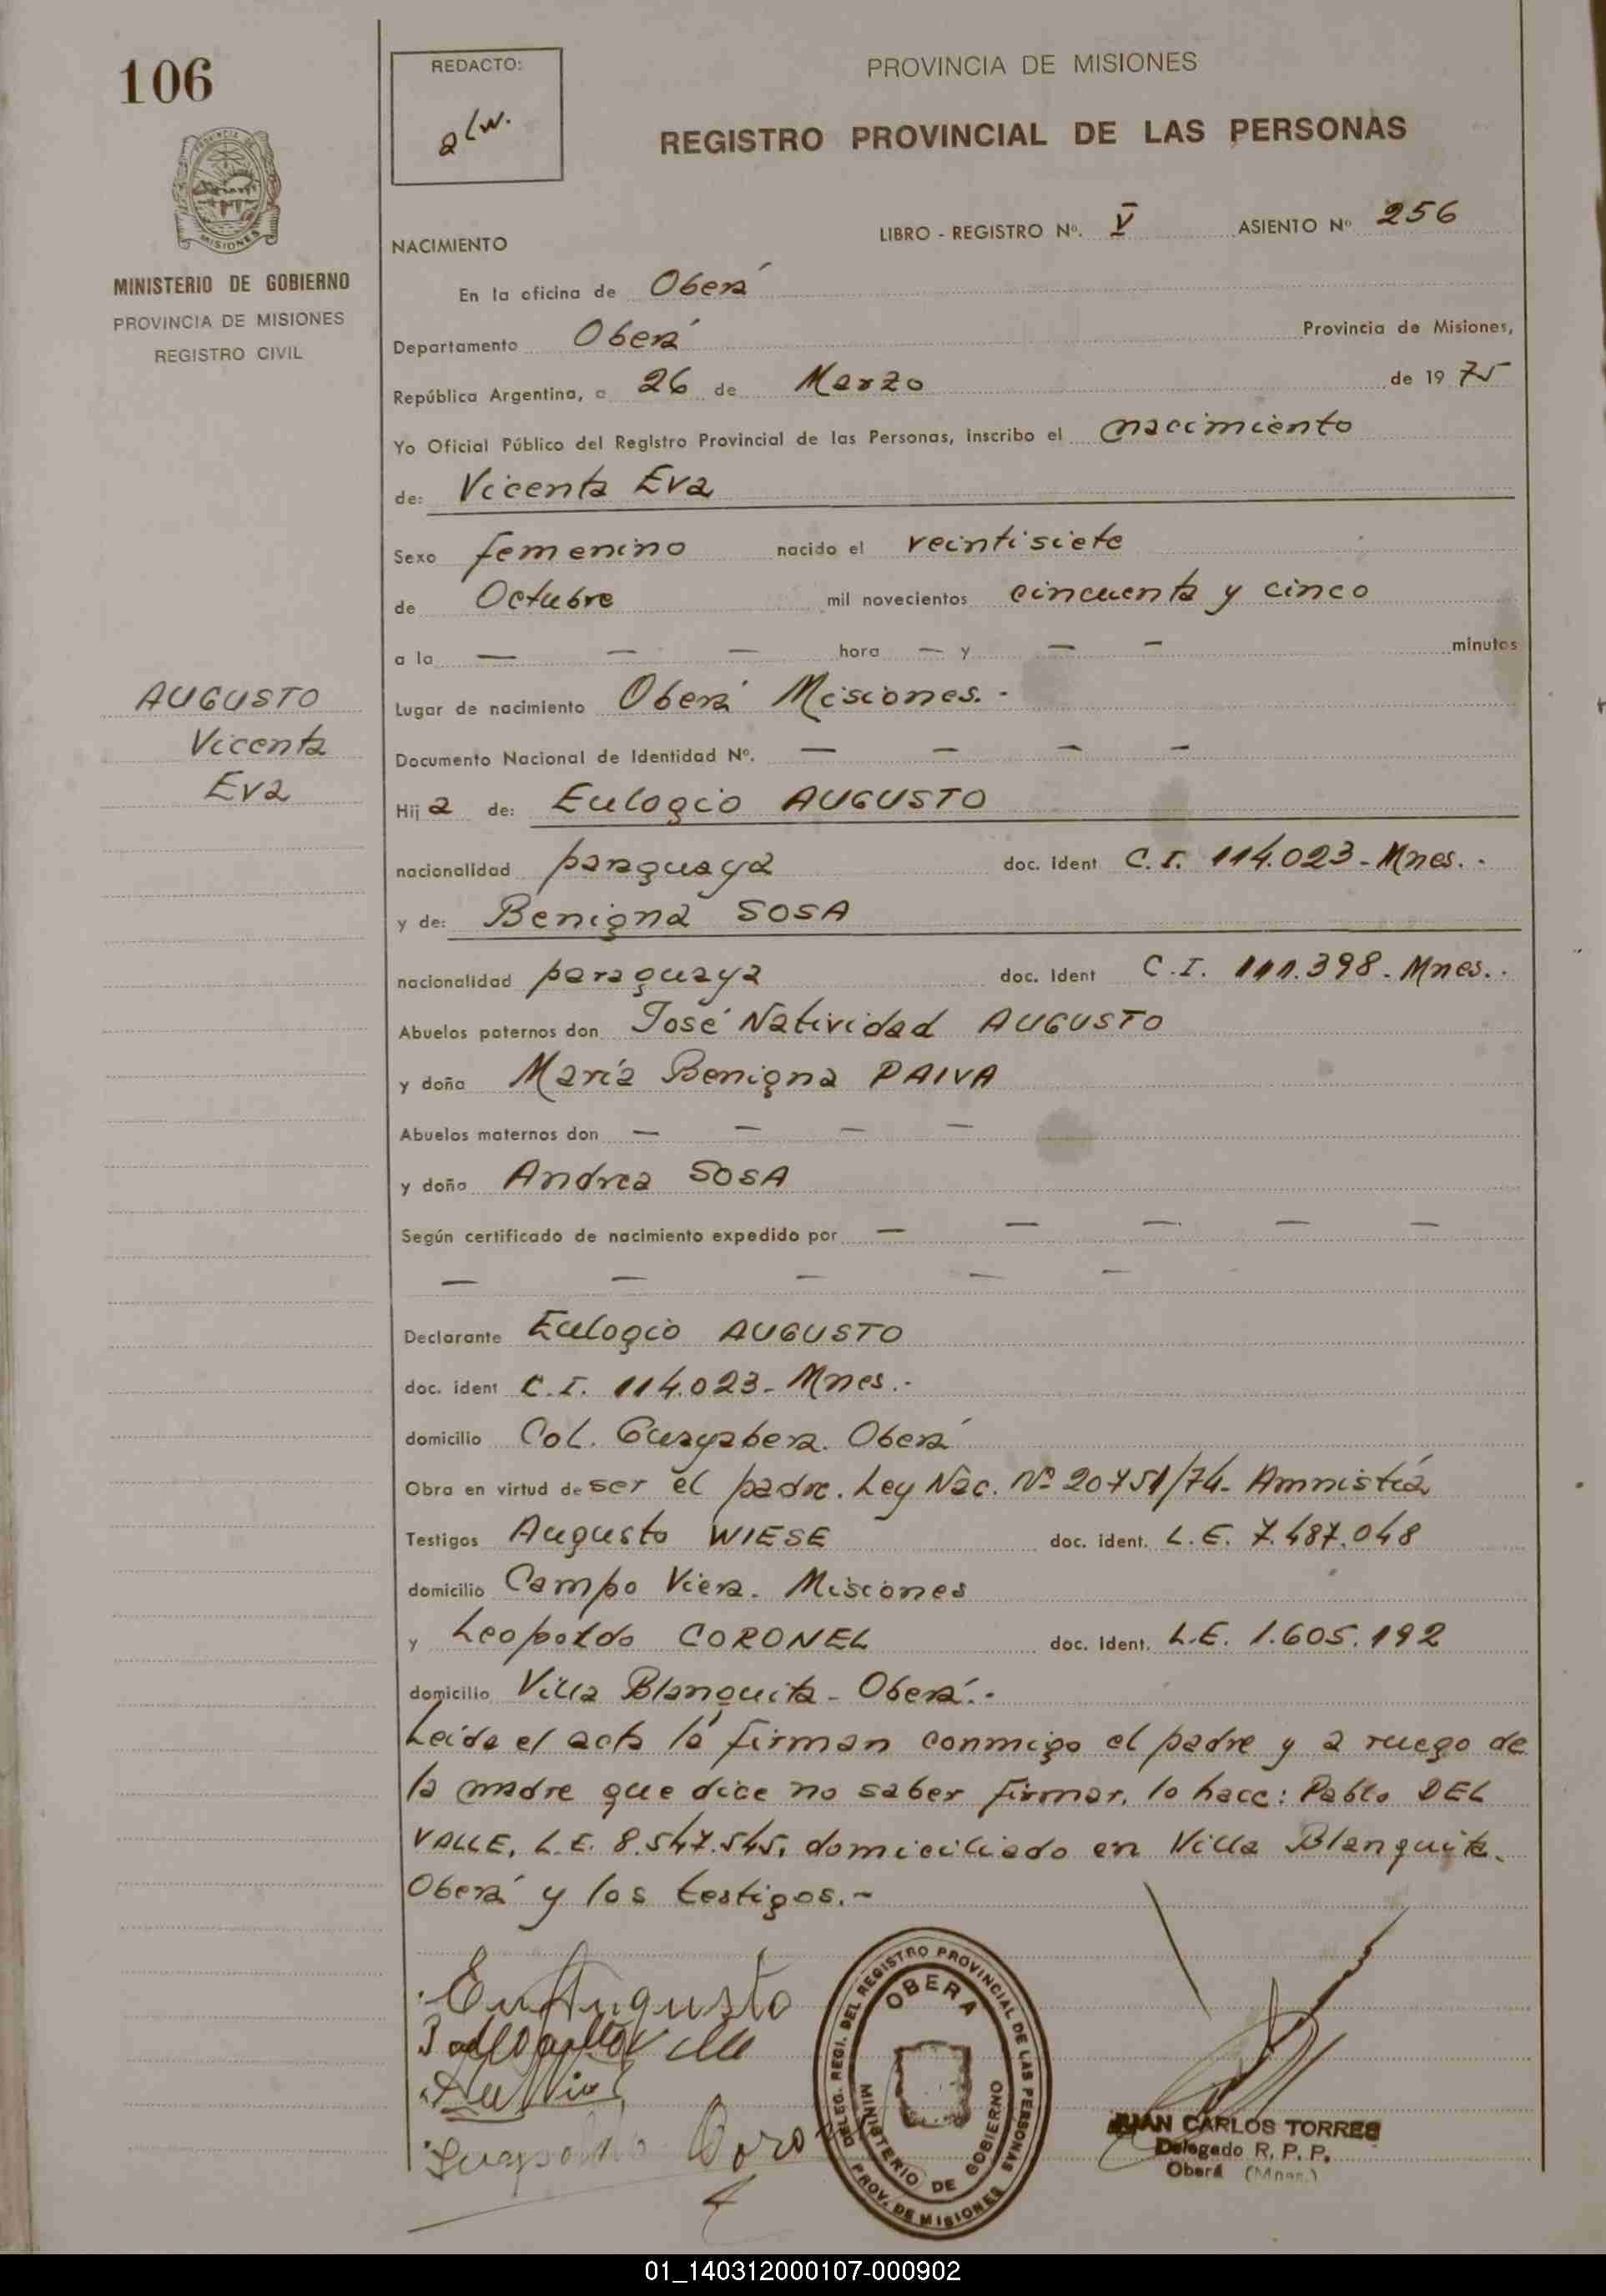 106
REDACTO:
PROVINCIA DE MISIONES
REGISTRO PROVINCIAL DE LAS PERSONAS
MISIONES
MINISTERIO DE GOBIERNO
PROVINCIA DE MISIONES
REGISTRO CIVIL
NACIMIENTO
LIBRO - REGISTRO Nº. V ASIENTO Nº 256
En la oficina de Oberá
Departamento Oberá Provincia de Misiones,
República Argentina, a 26 de Marzo de 1975
Yo Oficial Público del Registro Provincial de las Personas, inscribo el nacimiento
de: Vicenta Eva
Sexo femenino nacido el veintisiete
de Octubre mil novecientos cincuenta y cinco
a la — — — hora — y — — minutos
AUGUSTO
Vicenta
Eva
Lugar de nacimiento Oberá Misiones.-
Documento Nacional de Identidad Nº. — — — —
Hija de: Eulogio AUGUSTO
nacionalidad paraguaya doc. ident C.I. 114.023-Mnes.-
y de: Benigna SOSA
nacionalidad paraguaya doc. ident C.I. 111.398-Mnes.-
Abuelos paternos don José Natividad AUGUSTO
y doña María Benigna PAIVA
Abuelos maternos don — — — —
y doña Andrea SOSA
Según certificado de nacimiento expedido por — — — — —
— — — — —
Declarante Eulogio AUGUSTO
doc. ident C.I. 114.023-Mnes.-
domicilio Col. Guayabera. Oberá
Obra en virtud de ser el padre. Ley Nac. Nº 20751/74- Amnistía
Testigos Augusto WIESE doc. ident. L.E. 7.487.048
domicilio Campo Viera. Misiones
y Leopoldo CORONEL doc. ident. L.E. 1.605.192
domicilio Villa Blanquita - Oberá.-
Leída el acta la firman conmigo el padre y a ruego de
la madre que dice no saber firmar, lo hace: Pablo DEL
VALLE, L.E. 8.547.545, domiciliado en Villa Blanquita.
Oberá y los testigos.-
Eu Augusto
DELEG. REGI. DEL REGISTRO PROVINCIAL DE LAS PERSONAS
OBERA
MINISTERIO DE GOBIERNO
PROV. DE MISIONES
JUAN CARLOS TORRES
Delegado R. P. P.
Oberá (Mnes.)
01_140312000107-000902